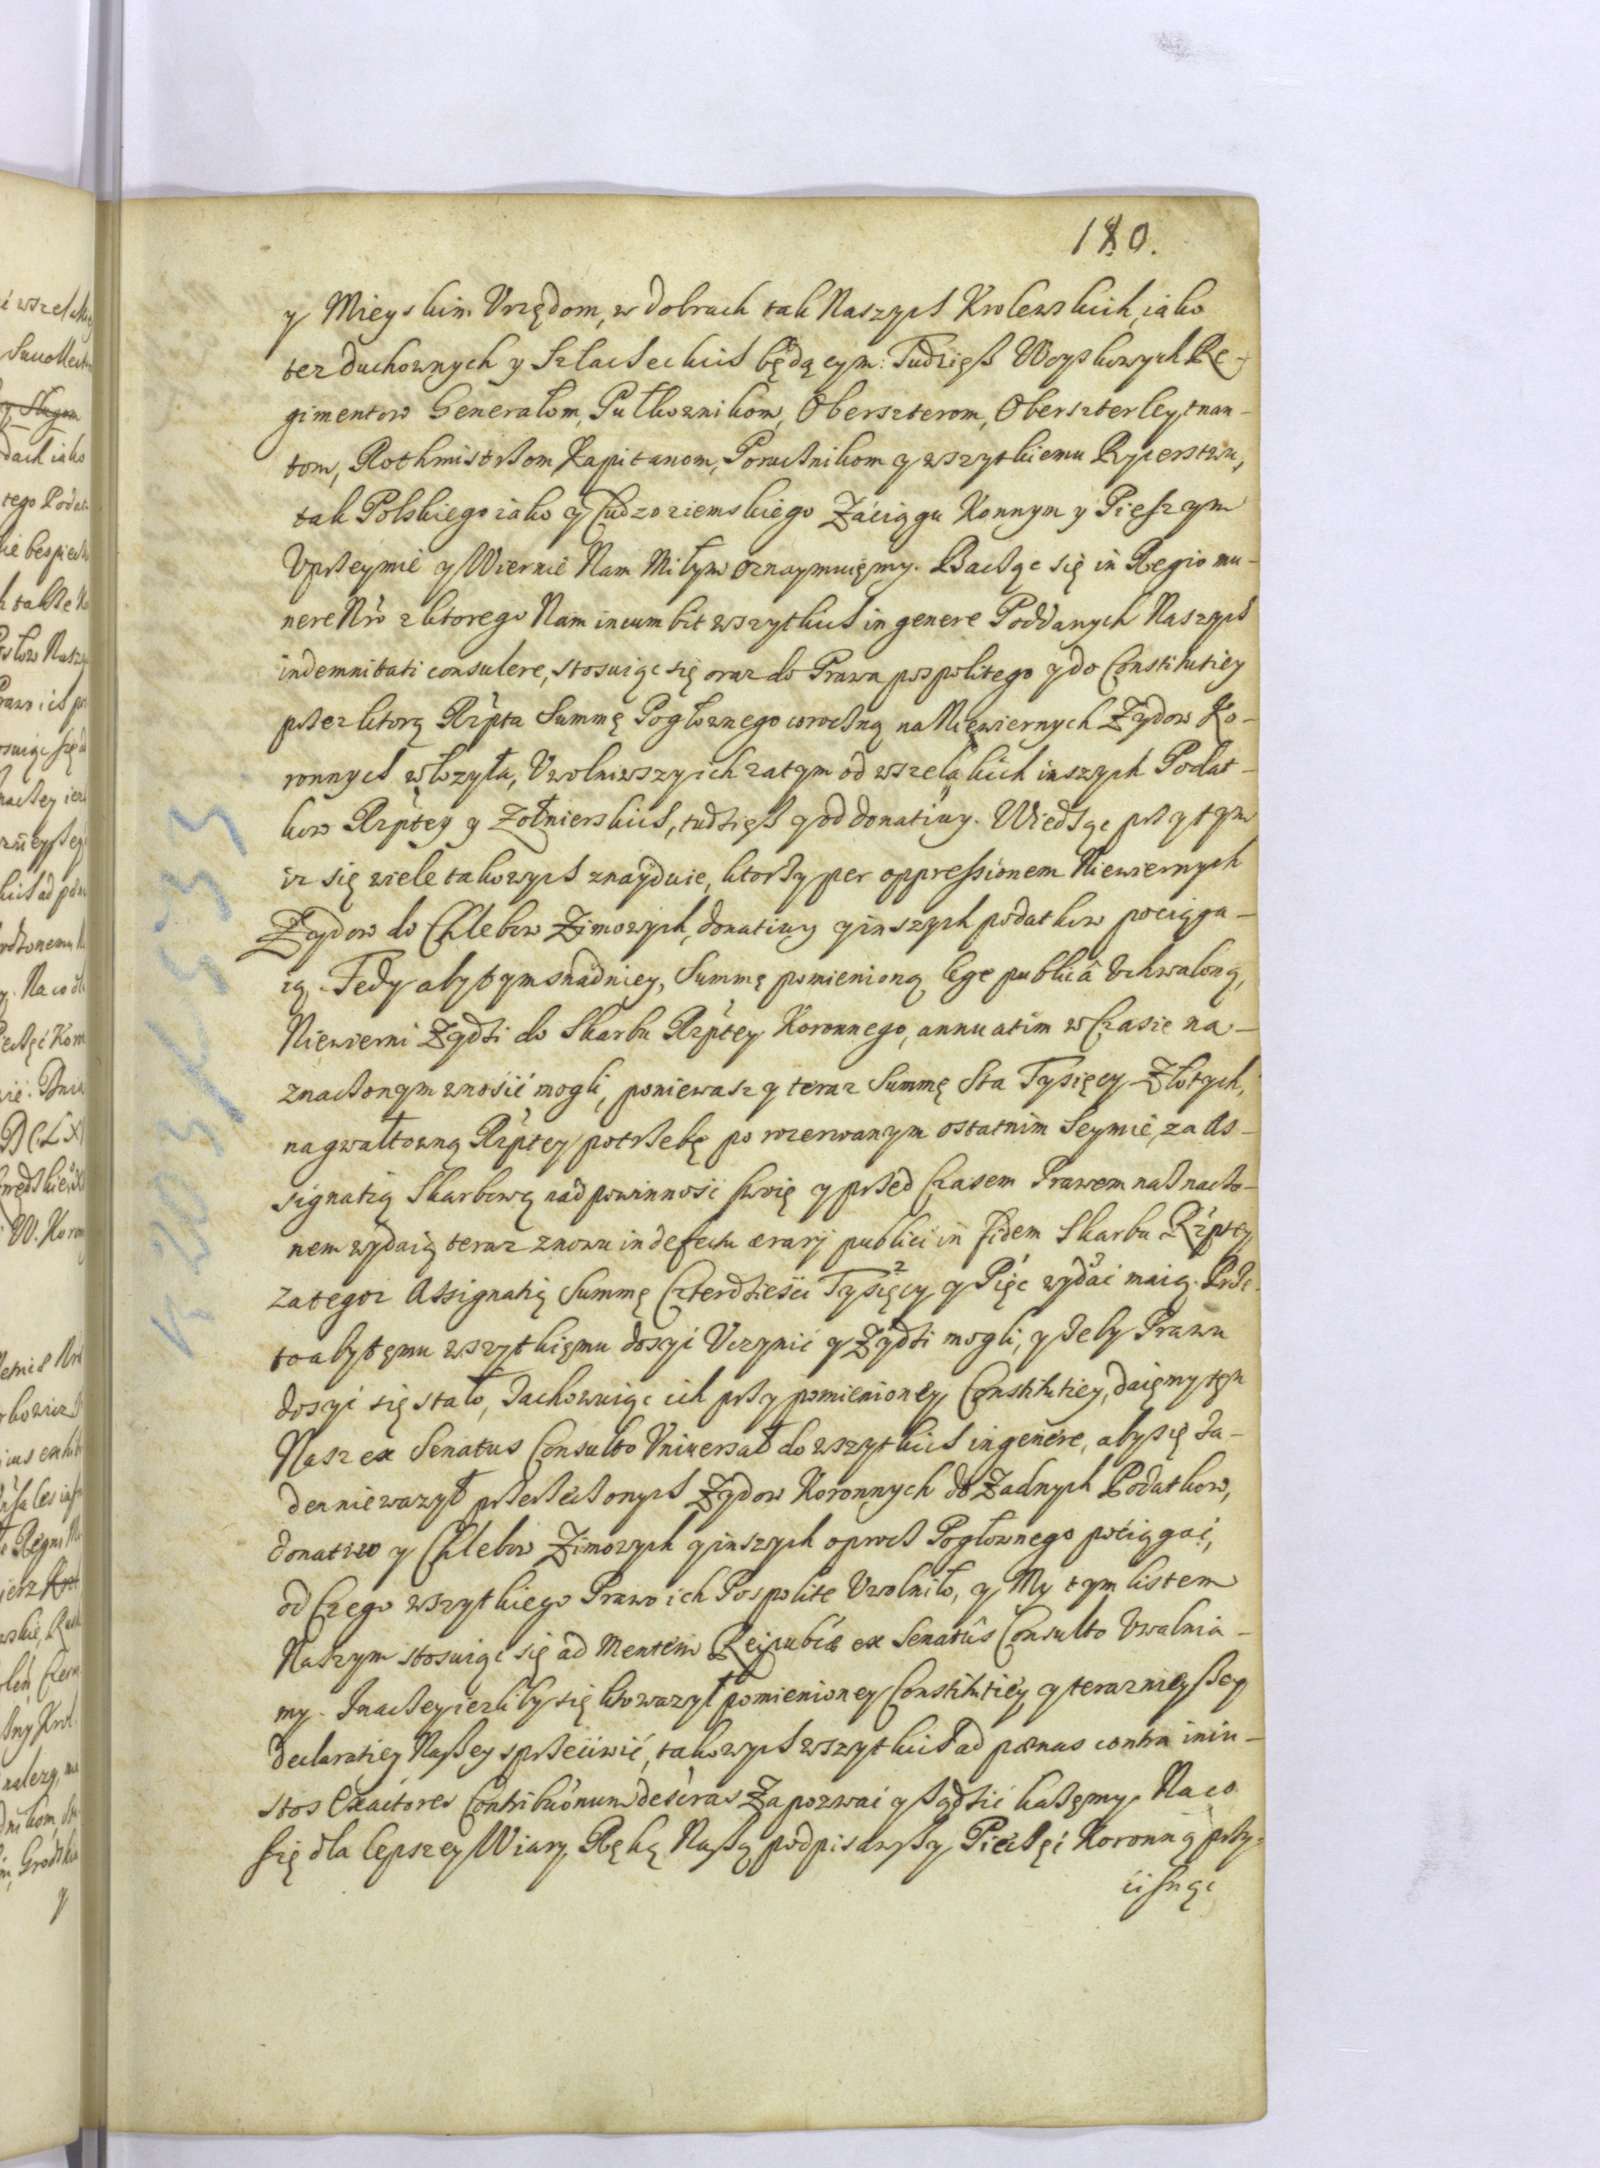 180.
y Mieyskim Vrzędom, w dobrach tak Naszych Krolewskich, iako
tez duchownych y Szlacheckich będącym: Tudzięß Woyskowych Re-
gimentow Generałom, Pułkownikom, Oberszterom, Oberszterleytnan-
tom, Rothmistrzom Kapitanom, Porucznikom y wszytkiemu Rycerstwu,
tak Polskiego iako y Cudzoziemskiego Záciągu Konnym y Pieszym
Vprzeymie y Wiernie Nam Miłym oznaymuięmy. Bacząc się in Regio mu-
nere Nro z ktorego Nam incumbit wszytkich in genere Poddanych Naszych
indemnitati consulere, stosuiąc się oraz do Prawa pospolitego y do Constitutiey
przez ktorą Rzpta Summę Pogłownego coroczną na Niewiernych Zydow Ko-
ronnych włozyła, Vwolniwszy ich zatym od wszelakich inszych Podat-
kow Rzptey y Zołnierskich, tudzięß y od donatiwy. Wiedząc przytym
iz się wiele takowych znayduie, ktorzy per oppressionem Niewiernych
Zydow do Chlebow Zimowych, donatiwy y inszych podatkow pociąga-
ią. Tedy aby tym snadniey, Summę pomienioną lege publicâ Vchwaloną,
Niewierni Zydzi do Skarbu Rzptey Koronnego, annuatim w Czasie na-
znaczonym wnosić mogli, poniewasz y teraz Summę Sta Tysięcy Złotych,
na gwałtowną Rzptey potrzebę po rozerwanym ostatnim Seymie, za As-
signatią Skarbową nád powinność swoię y przed Czasem Prawem naznaczo-
nem wydaią teraz znowu in defectu ærarj publici in fidem Skarbu Rzptey
za tegoz Assignatią Summę Czterdzieści Tysięcy y Pięć wydać maią. Prze
to aby tęmu wszytkięmu dosyć Vczynić y Zydzi mogli, y zeby Prawu
dosyć się stało, Zachowuiąc ich przy pomienioney Constitutiey, daięmy tęn
Nasz ex Senatus Consulto Vniwersał do wszytkich in genere, aby się ża-
den niewazył przerzeczonych Zydow Koronnych do Zadnych Podatkow,
donatiw y Chlebow Zimowych y inszych oprocz Pogłownego pociągać,
od Czego wszytkiego Prawo ich Pospolite Vwolniło, y My tym listem
Naszym stosuiąc się ad mentem Reipublæ ex Senatûs Consulto Vwalnia-
my. Inaczey iezliby się kto wazył pomienioney Constitutiey y teraznieyszey
declaratiey Naßey sprzeciwić, takowych wszytkich ad pænas contra iniu-
stos exactores Contribuonum descras Zapozwać y sądzić każęmy. Na co
się dla lepszey Wiary, Ręką Naßą podpisawßy, Pieczęć Koronną przy-
cisnąć